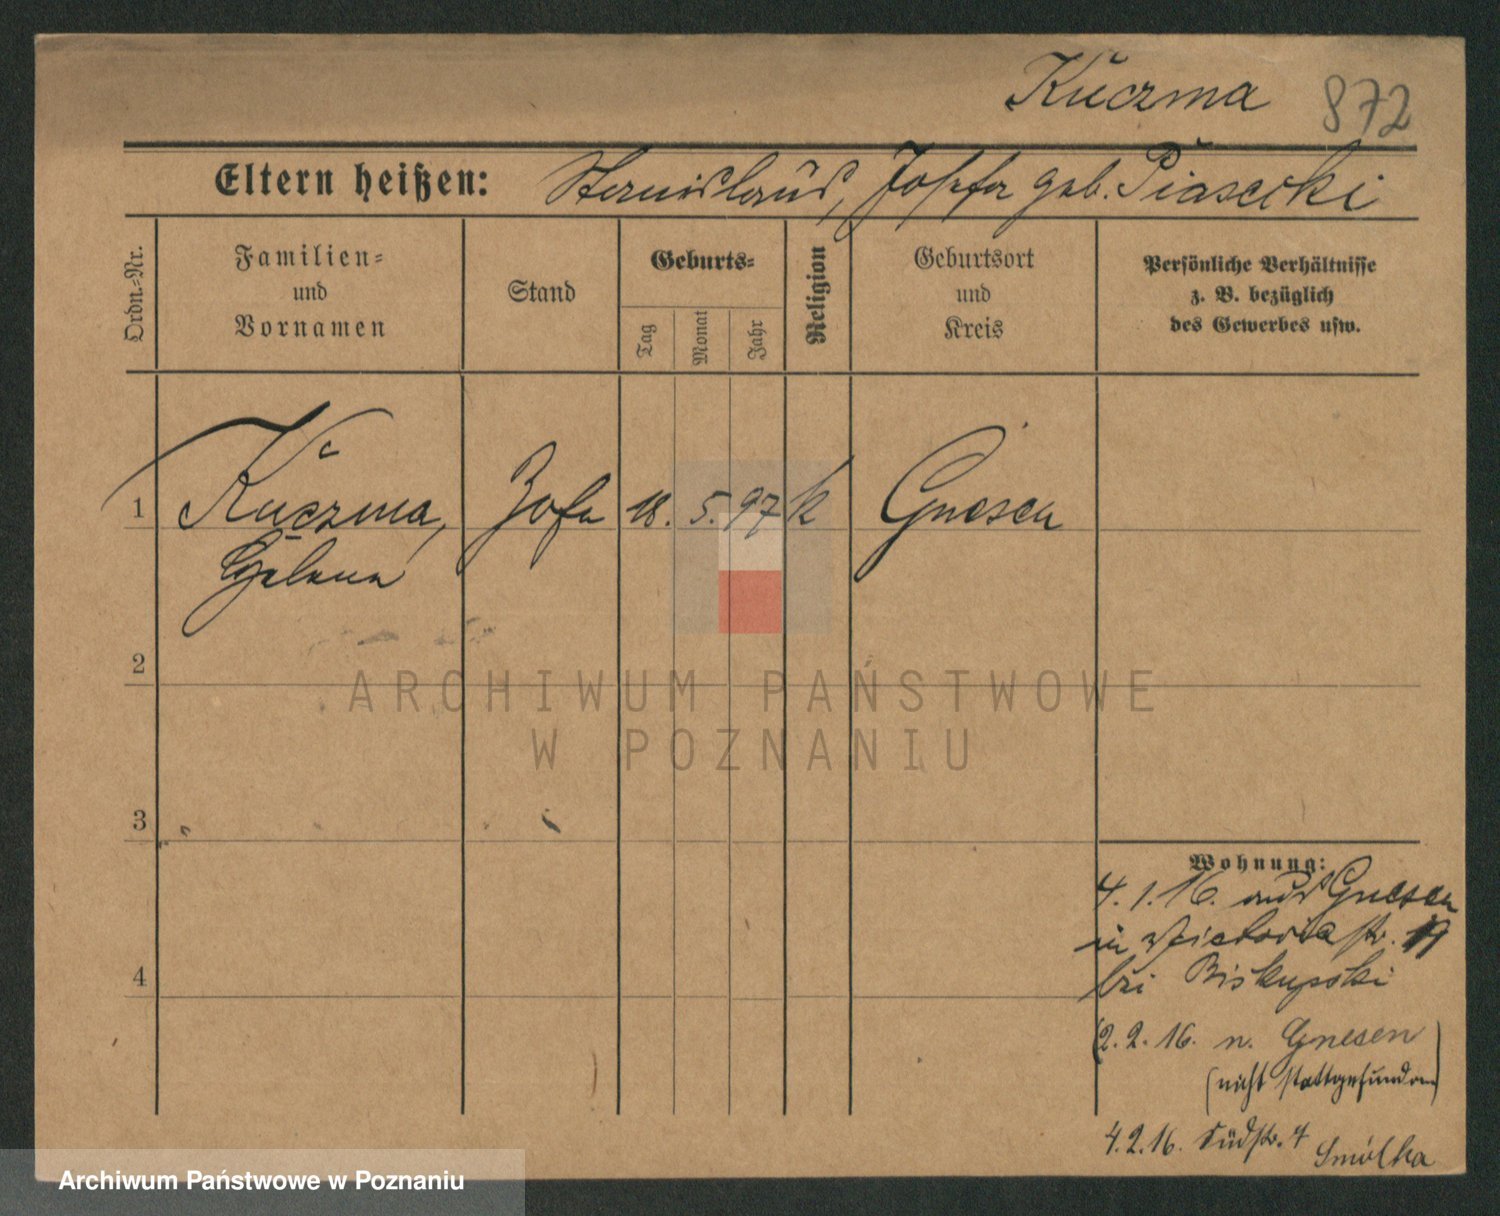 Kuczma 872
Eltern heißen: Stanislaus, Josefa geb. Piasecki
Ordn.-Nr.
Familien-
und
Vornamen
Stand
Geburts-
Tag
Monat
Jahr
Religion
Geburtsort
und
Kreis
Persönliche Verhältnisse
z. B. bezüglich
des Gewerbes usw.
1 Kuczma, 18. 5. 97 k Gnesen
Helena
2
ARCHIWUM PAŃSTWOWE
W POZNANIU
3
Wohnung:
4. 1. 16. aus Gnesen
in Victoria str.
bei Biskupski
4
2. 2. 16. n. Gnesen
(nicht stattgefunden)
4. 2. 16. Südstr. Smolka
Archiwum Państwowe w Poznaniu